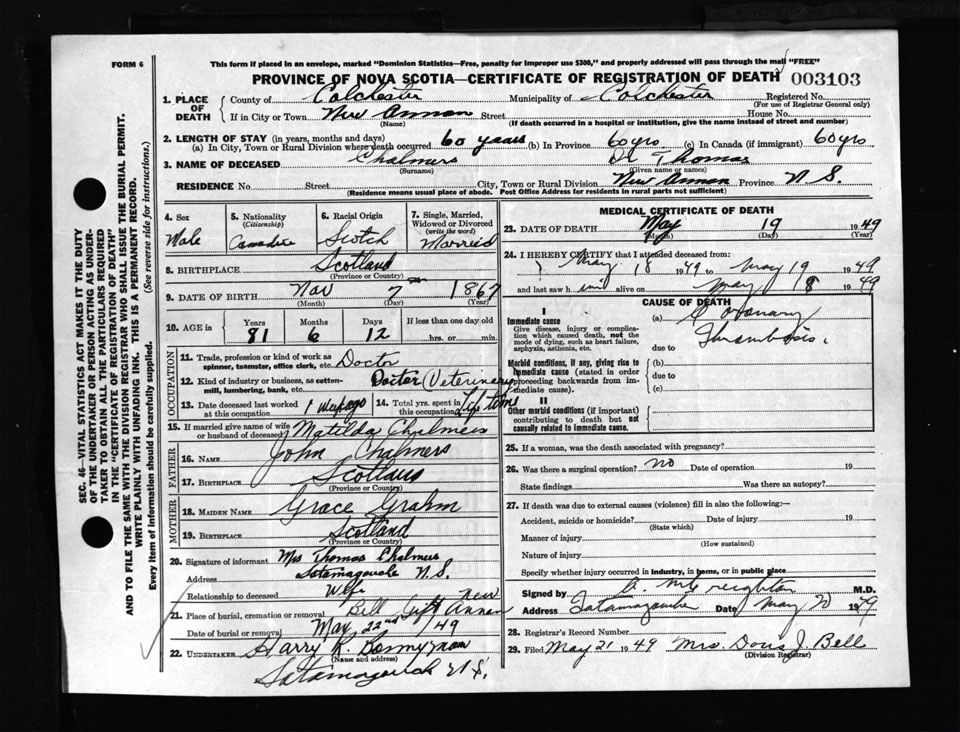 FORM 6
This form if placed in an envelope, marked "Dominion Statistics—Free, penalty for improper use $300," and properly addressed will pass through the mail "FREE"
PROVINCE OF NOVA SCOTIA—CERTIFICATE OF REGISTRATION OF DEATH 003103
1. PLACE OF DEATH
County of Colchester Municipality of Colchester Registered No.
(For use of Registrar General only)
If in City or Town New Annan Street House No.
(Name) (If death occurred in a hospital or institution, give the name instead of street and number)
2. LENGTH OF STAY (in years, months and days)
(a) In City, Town or Rural Division where death occurred 60 years (b) In Province 60 yrs (c) In Canada (if immigrant) 60 yrs
3. NAME OF DECEASED Chalmers Dr Thomas
(Surname) (Given name or names)
RESIDENCE No. Street City, Town or Rural Division New Annan Province N S.
(Residence means usual place of abode. Post Office Address for residents in rural parts not sufficient)
4. Sex
Male
5. Nationality
(Citizenship)
6. Racial Origin
Scotch
7. Single, Married, Widowed or Divorced
(write the word)
Married
8. BIRTHPLACE Scotland
(Province or Country)
9. DATE OF BIRTH Nov 7th 1867
(Month) (Day) (Year)
10. AGE in
Years Months Days If less than one day old
81 6 12 hrs. or min.
OCCUPATION
11. Trade, profession or kind of work as spinner, teamster, office clerk, etc. Doctor
12. Kind of industry or business, as cotton-mill, lumbering, bank, etc. Doctor (Veterinary
13. Date deceased last worked at this occupation 1 Week ago
14. Total yrs. spent in this occupation Life time
15. If married give name of wife or husband of deceased Matilda Chalmers
FATHER
16. NAME John Chalmers
17. BIRTHPLACE Scotland
(Province or Country)
MOTHER
18. MAIDEN NAME Grace Grahm
19. BIRTHPLACE Scotland
(Province or Country)
20. Signature of informant Mrs Thomas Chalmers
Address N.S.
Relationship to deceased Wife
21. Place of burial, cremation or removal Bell New Annan
Date of burial or removal May 22nd /49
22. UNDERTAKER Harry R. Bonnyman
(Name and address)
N.S.
MEDICAL CERTIFICATE OF DEATH
23. DATE OF DEATH May 19 1949
(Month) (Day) (Year)
24. I HEREBY CERTIFY that I attended deceased from:
May 18 1949 to May 19 1949
and last saw him alive on May 18 1949
CAUSE OF DEATH
I
Immediate cause
Give disease, injury or complication which caused death, not the mode of dying, such as heart failure, asphyxia, asthenia, etc.
(a) Coronary Thrombosis.
due to
Morbid conditions, if any, giving rise to immediate cause (stated in order proceeding backwards from immediate cause).
(b)
due to
(c)
II
Other morbid conditions (if important) contributing to death but not causally related to immediate cause.
25. If a woman, was the death associated with pregnancy?
26. Was there a surgical operation? no Date of operation 19
State findings Was there an autopsy?
27. If death was due to external causes (violence) fill in also the following:—
Accident, suicide or homicide? Date of injury 19
(State which)
Manner of injury
(How sustained)
Nature of injury
Specify whether injury occurred in industry, in home, or in public place
Signed by D. M Creighton M.D.
Address Tatamagouche Date May 20 1949
28. Registrar's Record Number
29. Filed May 21 1949 Mrs. Doris J. Bell
(Division Registrar)
SEC. 46—VITAL STATISTICS ACT MAKES IT THE DUTY OF THE UNDERTAKER OR PERSON ACTING AS UNDERTAKER TO OBTAIN ALL THE PARTICULARS REQUIRED IN THE "CERTIFICATE OF REGISTRATION OF DEATH" AND TO FILE THE SAME WITH THE DIVISION REGISTRAR WHO SHALL ISSUE THE BURIAL PERMIT.
WRITE PLAINLY WITH UNFADING INK. THIS IS A PERMANENT RECORD.
Every item of information should be carefully supplied. (See reverse side for instructions.)